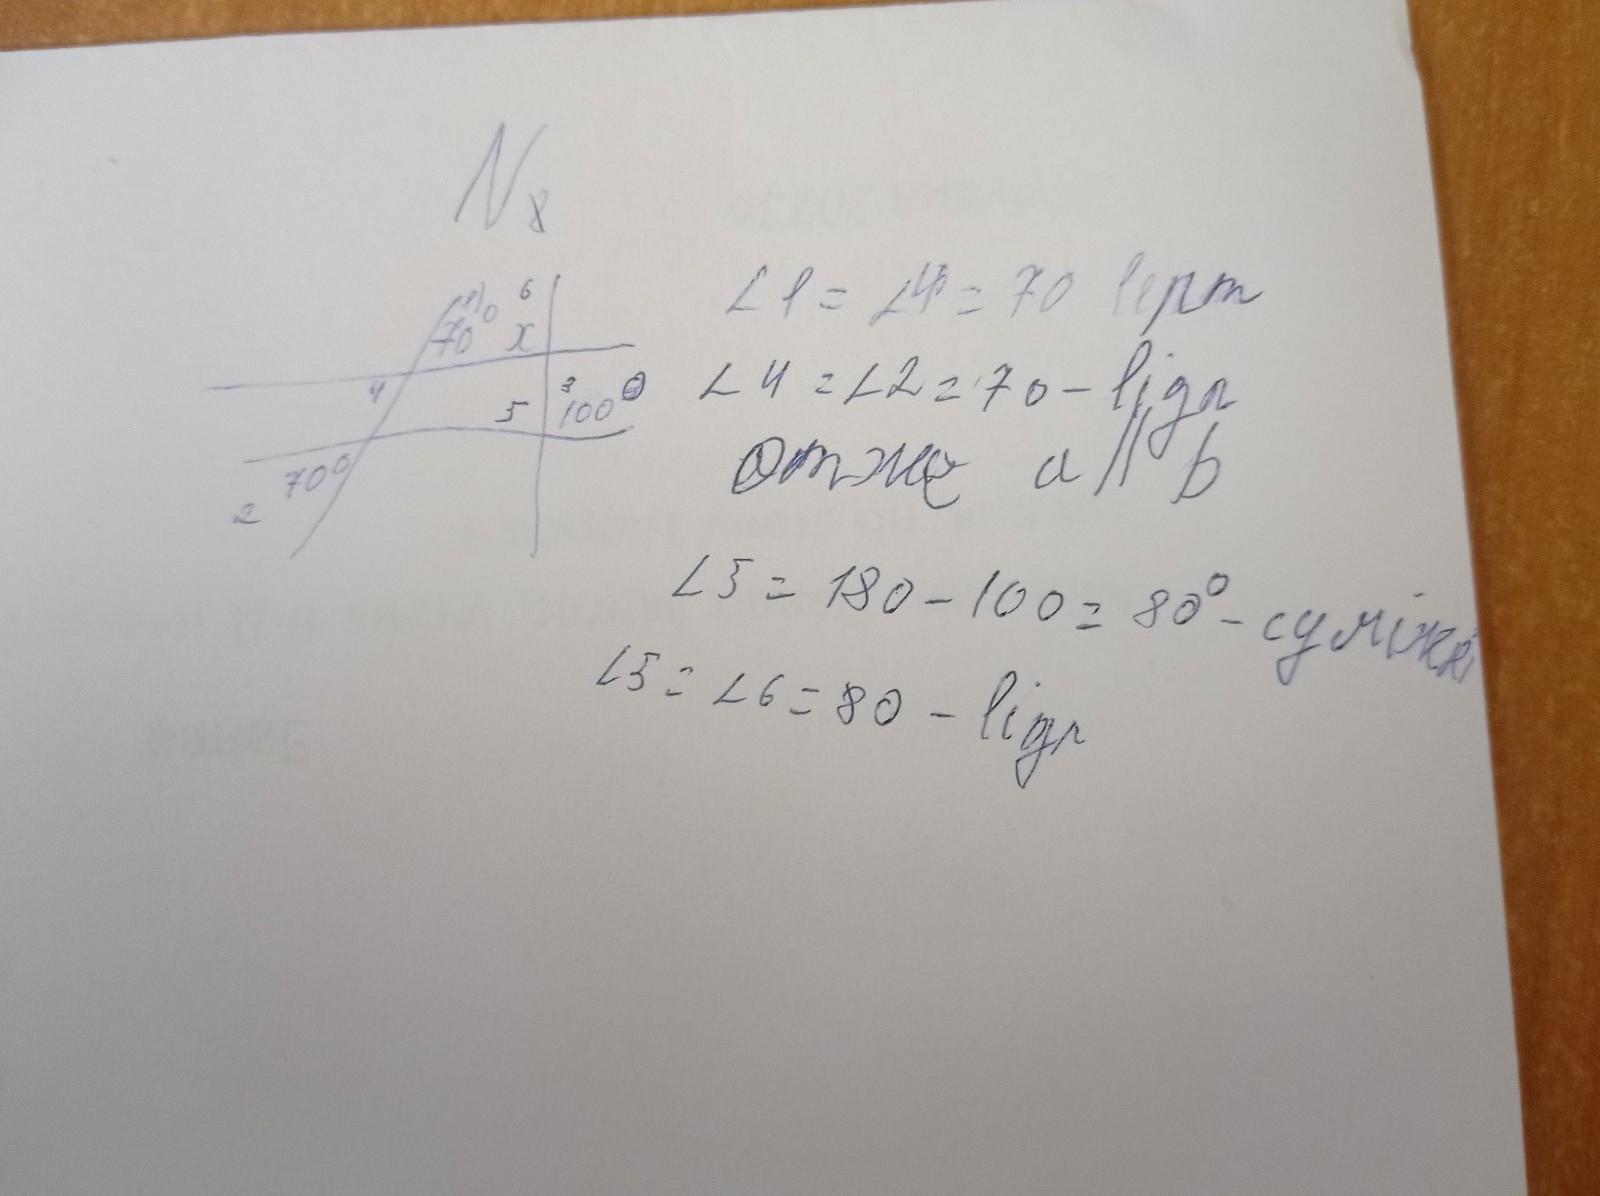 N8
1
70°
6
x
4
5
3
100°
70°
2
∠1 = ∠4 = 70 верт
∠4 = ∠2 = 70 - відп
отже a || b
∠5 = 180 - 100 = 80° - суміжні
∠5 = ∠6 = 80 - відп